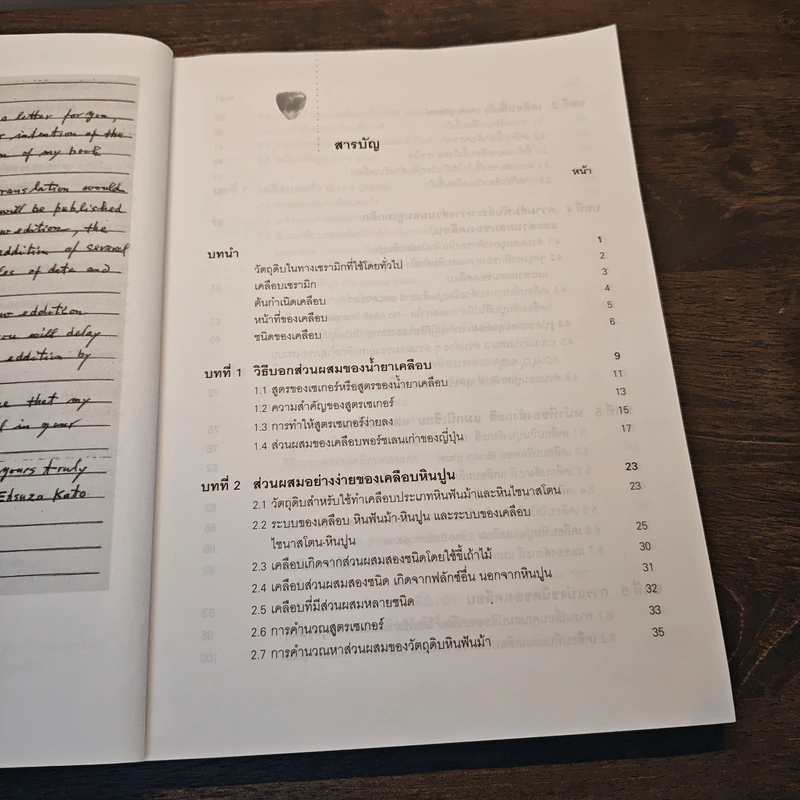 a letter for you,
intention of the
of my book
translation would
will be published
edition, the
addition of several
of date and
eddition
you will delay
eddition by
that my
in your
yours truly
Etsuzo Kato
สารบัญ
หน้า
บทนำ 1
วัตถุดิบในทางเซรามิกที่ใช้โดยทั่วไป 2
เคลือบเซรามิก 3
ต้นกำเนิดเคลือบ 4
หน้าที่ของเคลือบ 5
ชนิดของเคลือบ 6
บทที่ 1 วิธีบอกส่วนผสมของน้ำยาเคลือบ 9
1.1 สูตรของเซเกอร์หรือสูตรของน้ำยาเคลือบ 11
1.2 ความสำคัญของสูตรเซเกอร์ 13
1.3 การทำให้สูตรเซเกอร์ง่ายลง 15
1.4 ส่วนผสมของเคลือบพอร์ซเลนเก่าของญี่ปุ่น 17
บทที่ 2 ส่วนผสมอย่างง่ายของเคลือบหินปูน 23
2.1 วัตถุดิบสำหรับใช้ทำเคลือบประเภทหินฟันม้าและหินไชนาสโตน 23
2.2 ระบบของเคลือบ หินฟันม้า-หินปูน และระบบของเคลือบ
ไชนาสโตน-หินปูน 25
2.3 เคลือบเกิดจากส่วนผสมสองชนิดโดยใช้ขี้เถ้าไม้ 30
2.4 เคลือบส่วนผสมสองชนิด เกิดจากฟลักซ์อื่น นอกจากหินปูน 31
2.5 เคลือบที่มีส่วนผสมหลายชนิด 32
2.6 การคำนวณสูตรเซเกอร์ 33
2.7 การคำนวณหาส่วนผสมของวัตถุดิบหินฟันม้า 35